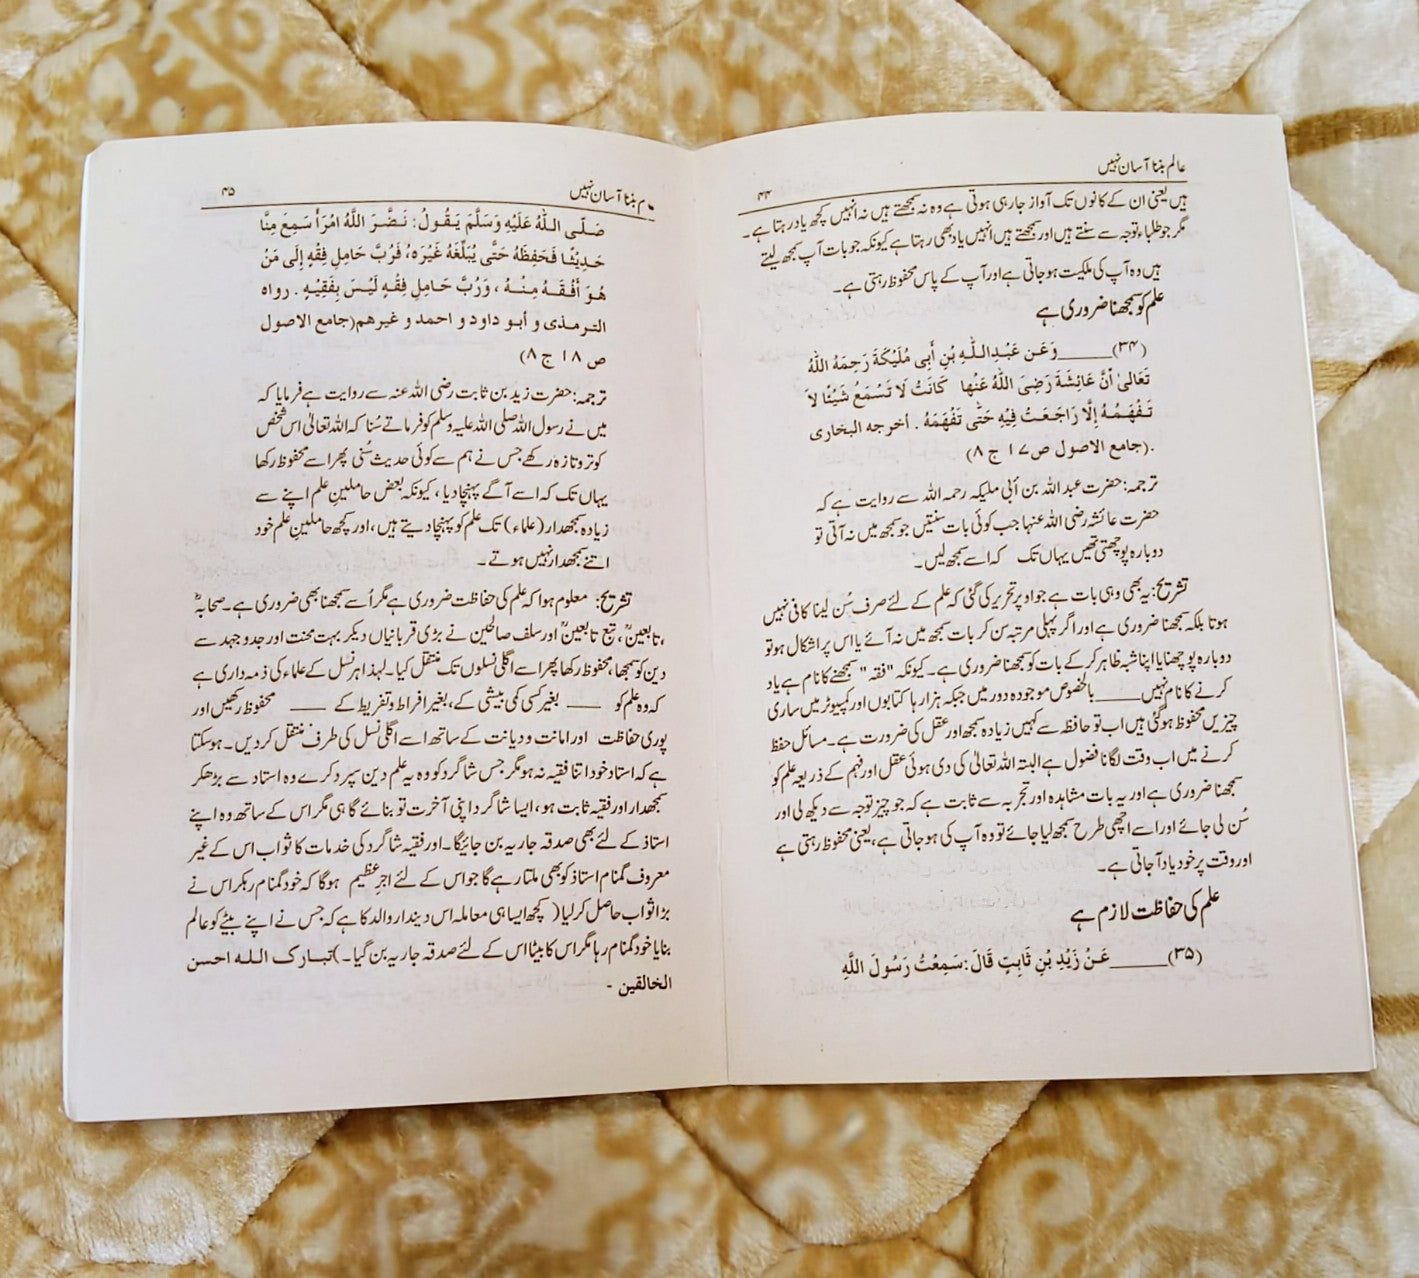 عالم بننا آسان نہیں
۴۴
ہیں یعنی ان کے کانوں تک آواز جا رہی ہوتی ہے وہ نہ سمجھتے ہیں نہ انہیں کچھ یاد رہتا ہے۔
مگر جو طلباء توجہ سے سنتے ہیں اور سمجھتے ہیں انہیں یاد بھی رہتا ہے کیونکہ جو بات آپ سمجھ لیتے
ہیں وہ آپ کی ملکیت ہو جاتی ہے اور آپ کے پاس محفوظ رہتی ہے۔
علم کو سمجھنا ضروری ہے
(۳۴)____وَعَن عَبْدِاللّٰهِ بْنِ أَبِی مُلَیْکَةَ رَحِمَهُ اللّٰهُ
تَعَالیٰ أَنَّ عَائِشَةَ رَضِیَ اللّٰهُ عَنْهَا کَانَتْ لَا تَسْمَعُ شَیْئًا لَا
تَفْهَمُهُ إِلَّا رَاجَعَتْ فِیْهِ حَتّٰی تَفْهَمَهُ . أخرجه البخاری
.(جامع الاصول ص۱۷ ج ۸)
ترجمہ: حضرت عبد اللہ بن أبی ملیکہ رحمہ اللہ سے روایت ہے کہ
حضرت عائشہ رضی اللہ عنہا جب کوئی بات سنتیں جو سمجھ میں نہ آتی تو
دوبارہ پوچھتی تھیں یہاں تک کہ اسے سمجھ لیں۔
تشریح: یہ بھی وہی بات ہے جو اوپر تحریر کی گئی کہ علم کے لئے صرف سُن لینا کافی نہیں
ہوتا بلکہ سمجھنا ضروری ہے اور اگر پہلی مرتبہ سن کر بات سمجھ میں نہ آئے یا اس پر اشکال ہو تو
دوبارہ پوچھنا یا اپنا شبہ ظاہر کر کے بات کو سمجھنا ضروری ہے۔ کیونکہ "فقہ" سمجھنے کا نام ہے یاد
کرنے کا نام نہیں____ بالخصوص موجودہ دور میں جبکہ ہزار ہا کتابوں اور کمپیوٹر میں ساری
چیزیں محفوظ ہو گئی ہیں اب تو حافظہ سے کہیں زیادہ سمجھ اور عقل کی ضرورت ہے۔ مسائل حفظ
کرنے میں اب وقت لگانا فضول ہے البتہ اللہ تعالیٰ کی دی ہوئی عقل اور فہم کے ذریعہ علم کو
سمجھنا ضروری ہے اور یہ بات مشاہدہ اور تجربہ سے ثابت ہے کہ جو چیز توجہ سے دیکھ لی اور
سُن لی جائے اور اسے اچھی طرح سمجھ لیا جائے تو وہ آپ کی ہو جاتی ہے، یعنی محفوظ رہتی ہے
اور وقت پر خود یاد آ جاتی ہے۔
علم کی حفاظت لازم ہے
(۳۵)____عَنْ زَیْدِ بْنِ ثَابِتٍ قَالَ: سَمِعْتُ رَسُولَ اللّٰهِ
م بننا آسان نہیں
۴۵
صَلَّی اللّٰهُ عَلَیْهِ وَسَلَّمَ یَقُولُ: نَضَّرَ اللّٰهُ امْرَأً سَمِعَ مِنَّا
حَدِیْثًا فَحَفِظَهُ حَتّٰی یُبَلِّغَهُ غَیْرَهُ، فَرُبَّ حَامِلِ فِقْهٍ إِلَی مَنْ
هُوَ أَفْقَهُ مِنْهُ ، وَرُبَّ حَامِلِ فِقْهٍ لَیْسَ بِفَقِیْهٍ . رواه
الترمذی و أبو داود و احمد و غیرهم(جامع الاصول
ص ۱۸ ج ۸)
ترجمہ: حضرت زید بن ثابت رضی اللہ عنہ سے روایت ہے فرمایا کہ
میں نے رسول اللہ صلی اللہ علیہ وسلم کو فرماتے سُنا کہ اللہ تعالیٰ اس شخص
کو تر و تازہ رکھے جس نے ہم سے کوئی حدیث سُنی پھر اسے محفوظ رکھا
یہاں تک کہ اسے آگے پہنچا دیا ، کیونکہ بعض حاملینِ علم اپنے سے
زیادہ سمجھدار (علماء) تک علم کو پہنچا دیتے ہیں، اور کچھ حاملینِ علم خود
اتنے سمجھدار نہیں ہوتے۔
تشریح: معلوم ہوا کہ علم کی حفاظت ضروری ہے مگر اُسے سمجھنا بھی ضروری ہے۔ صحابہؓ
، تابعینؒ، تبع تابعینؒ اور سلف صالحین نے بڑی قربانیاں دیکر بہت محنت اور جدوجہد سے
دین کو سمجھا، محفوظ رکھا پھر اسے اگلی نسلوں تک منتقل کیا۔ لہذا ہر نسل کے علماء کی ذمہ داری ہے
کہ وہ علم کو ____ بغیر کسی کمی بیشی کے، بغیر افراط و تفریط کے ____ محفوظ رکھیں اور
پوری حفاظت اور امانت و دیانت کے ساتھ اسے اگلی نسل کی طرف منتقل کر دیں۔ ہو سکتا
ہے کہ استاد خود اتنا فقیہ نہ ہو مگر جس شاگرد کو وہ یہ علم دین سپرد کرے وہ استاد سے بڑھکر
سمجھدار اور فقیہ ثابت ہو، ایسا شاگرد اپنی آخرت تو بنائے گا ہی مگر اس کے ساتھ وہ اپنے
استاذ کے لئے بھی صدقہ جاریہ بن جائیگا۔ اور فقیہ شاگرد کی خدمات کا ثواب اس کے غیر
معروف گمنام استاذ کو بھی ملتا رہے گا جو اس کے لئے اجرِ عظیم ہوگا کہ خود گمنام رہکر اس نے
بڑا ثواب حاصل کر لیا (کچھ ایسا ہی معاملہ اس دیندار والد کا ہے کہ جس نے اپنے بیٹے کو عالم
بنایا خود گمنام رہا مگر اس کا بیٹا اس کے لئے صدقہ جاریہ بن گیا۔)تبارک اللہ احسن
الخالقین -